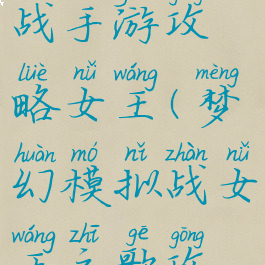 战手游攻
lüè nǚ wáng mèng
略女王(梦
huàn mó nǐ zhàn nǚ
幻模拟战女
wáng zhī gē gōng